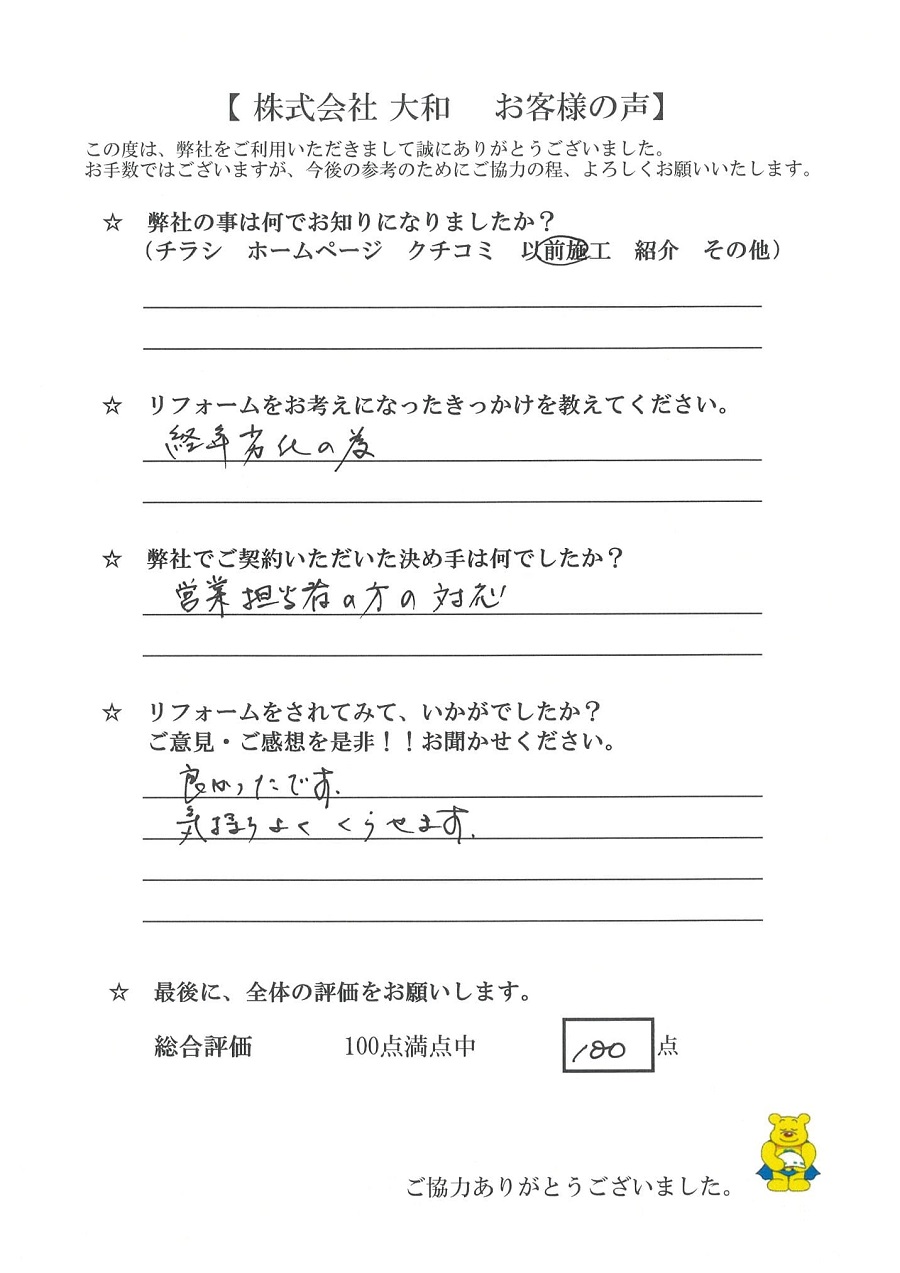 【 株式会社 大和　 お客様の声】
この度は、弊社をご利用いただきまして誠にありがとうございました。
お手数ではございますが、今後の参考のためにご協力の程、よろしくお願いいたします。
☆　弊社の事は何でお知りになりましたか？
（チラシ　ホームページ　クチコミ　以前施工　紹介　その他）
☆　リフォームをお考えになったきっかけを教えてください。
経年劣化の為
☆　弊社でご契約いただいた決め手は何でしたか？
営業担当者の方の対応
☆　リフォームをされてみて、いかがでしたか？
ご意見・ご感想を是非！！お聞かせください。
良かったです.
気持ちよく くらせます.
☆　最後に、全体の評価をお願いします。
総合評価　　100点満点中　　100 点
ご協力ありがとうございました。